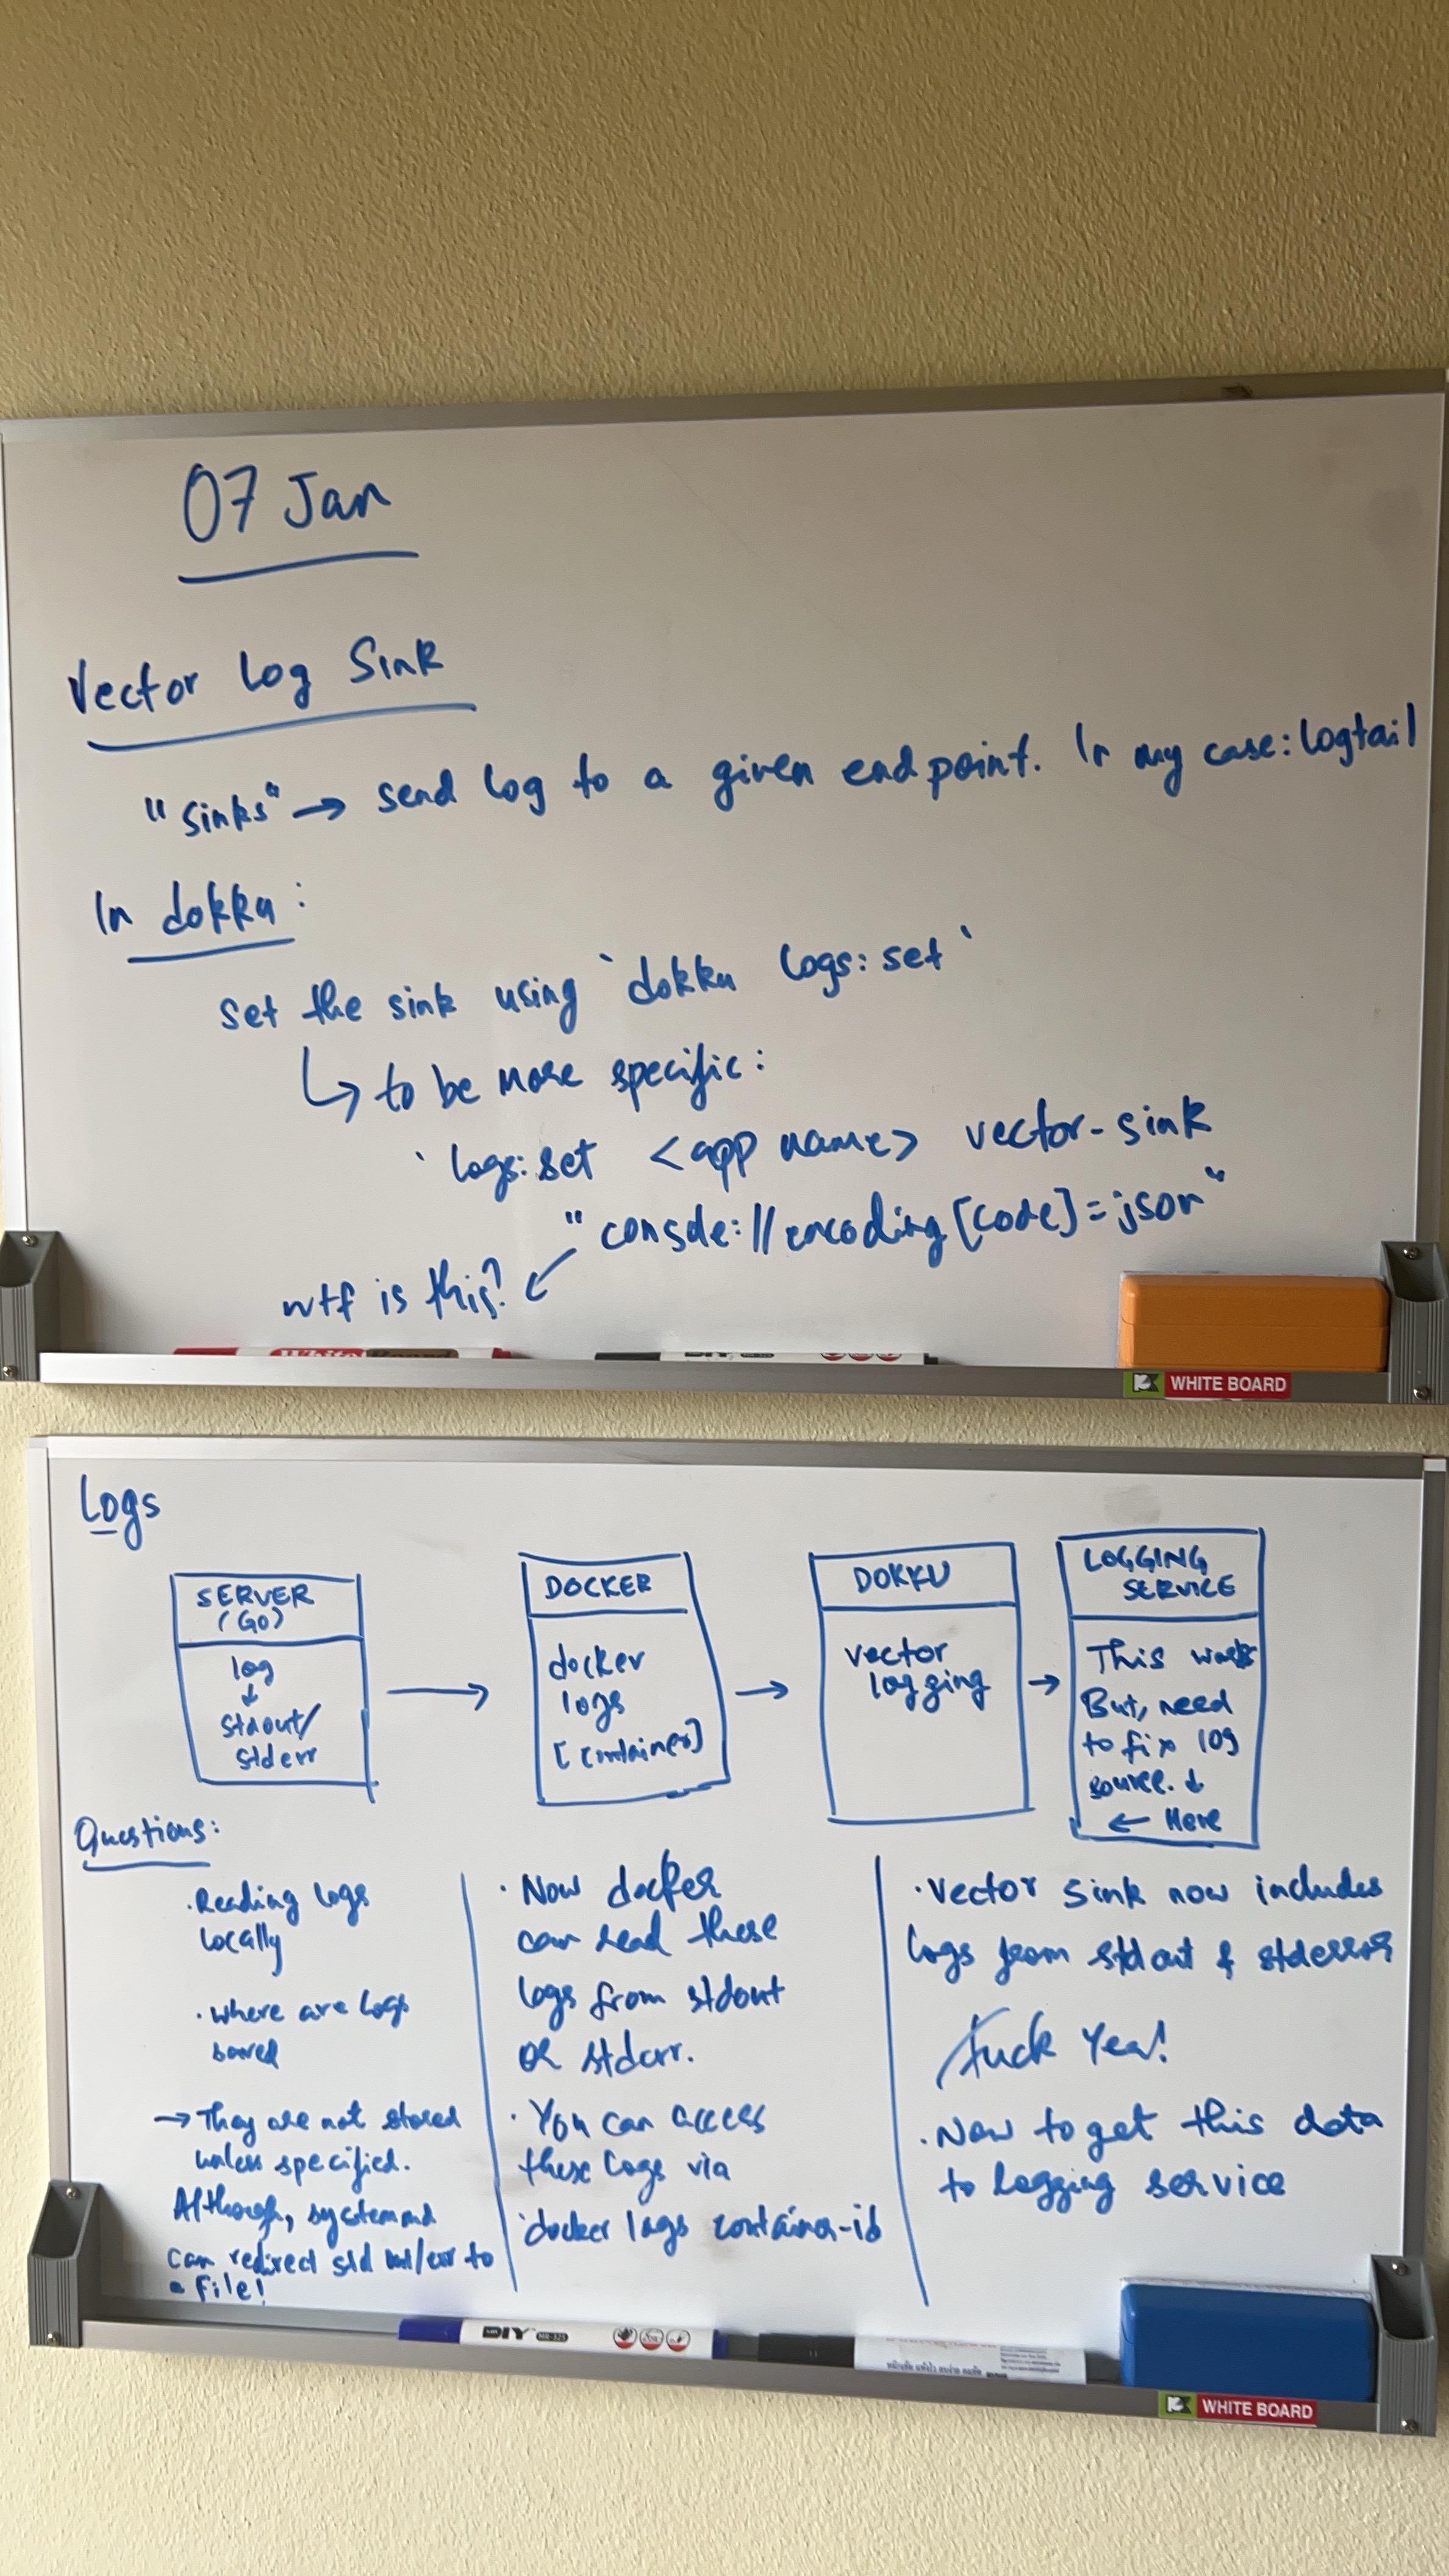 07 Jan
Vector Log Sink
"Sinks" → send log to a given endpoint. In my case: logtail
In dokku:
Set the sink using `dokku logs:set`
↳ to be more specific:
` logs:set <app name> vector-sink
"console://encoding[code]=json"
wtf is this? ↙
WHITE BOARD
Logs
SERVER
(GO)
log
↓
stdout/
stderr
→
DOCKER
docker
logs
[container]
→
DOKKU
vector
logging
→
LOGGING
SERVICE
This works
But, need
to fix log
source. ↓
← Here
Questions:
· Reading logs
locally
· where are logs
saved
→ They are not stored
unless specified.
Although, systemd
can redirect std out/err to
a file!
· Now docker
can read these
logs from stdout
or stderr.
· You can access
these logs via
`docker logs container-id
· vector sink now includes
logs from stdout & stderror
fuck Yea!
· Now to get this data
to logging service
DIY
WHITE BOARD